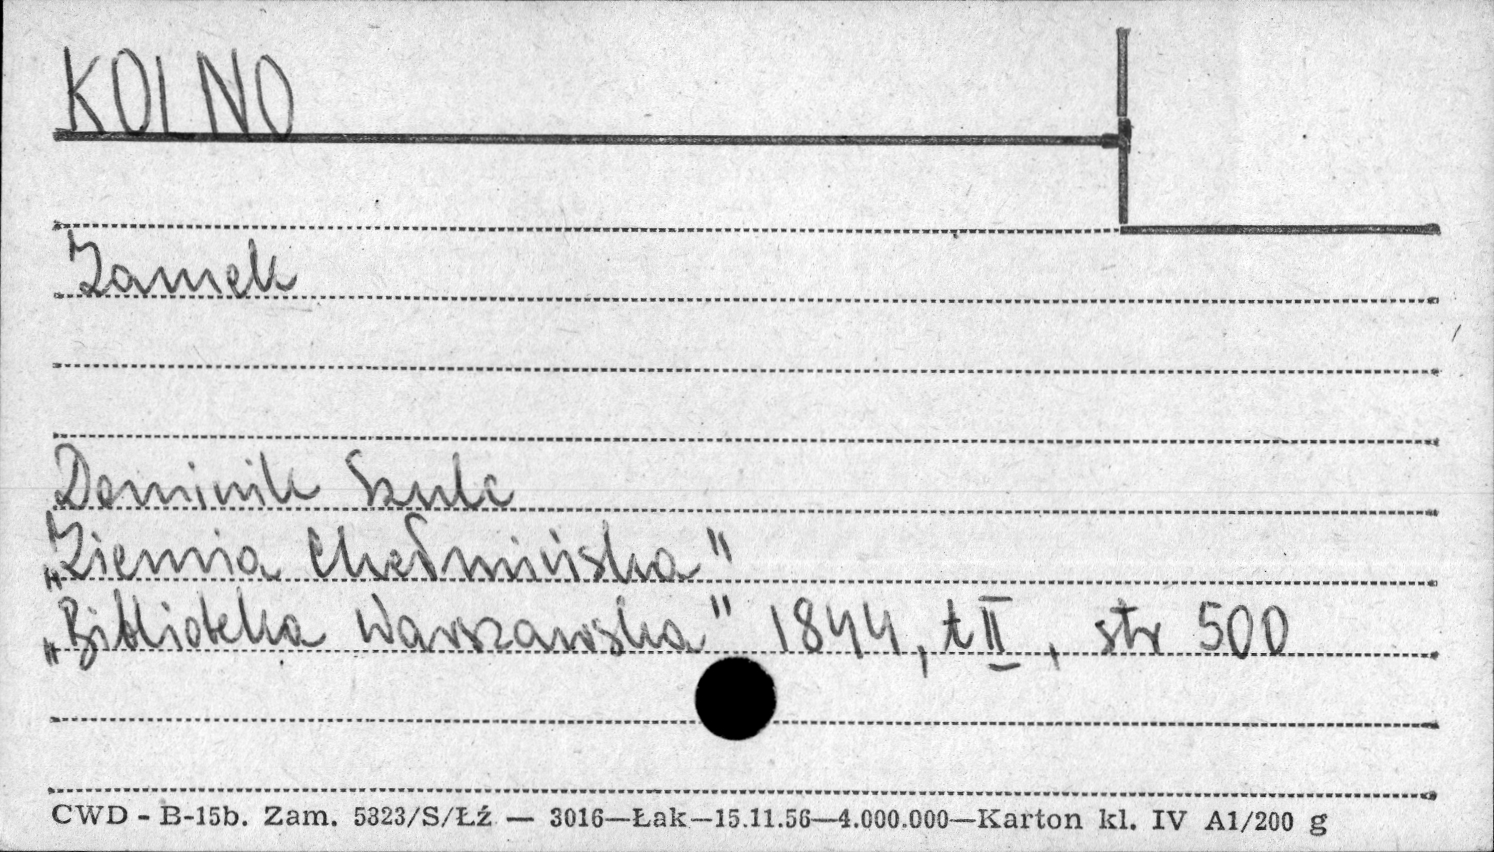 KOLNO
Zamek
Dominik Szulc
„Ziemia Chełmińska"
„Biblioteka Warszawska" 1844, t II, str 500
CWD - B-15b. Zam. 5323/S/Łź — 3016—Łak—15.11.56—4.000.000—Karton kl. IV A1/200 g